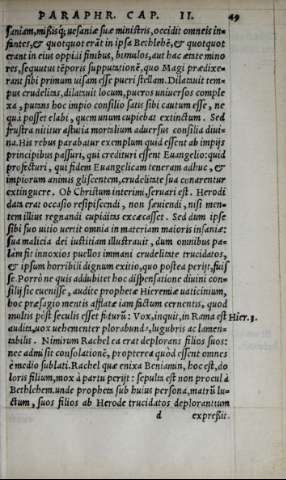 PARAPHR. CAP. II. 49
saniam, missisq́; uesaniæ suæ ministris, occidit omneis in=
fantes, & quotquot erāt in ipsa Bethlehē, & quotquot
erant in eius oppidi finibus, bimulos, aut hac ætate mino
res, sequutus tēporis supputationē, quo Magi prædixe=
rant sibi primum uisam esse pueri stellam. Dilatauit tem=
pus crudelitas, dilatauit locum, pueros uniuersos comple
xa, putans hoc impio consilio satis sibi cautum esse, ne
quà posset elabi, quem unum cupiebat extinctum. Sed
frustra nititur astutia mortalium aduersus consilia diui=
na. His rebus parabatur exemplum quid essent ab impijs
principibus passuri, qui credituri essent Euangelio: quid
profecturi, qui fidem Euangelicam teneram adhuc, &
impiorum animis gliscentem, crudelitate sua conarentur
extinguere. Ob Christum interimi, seruari est. Herodi
data erat occasio resipiscendi, non sæuiendi, nisi men=
tem illius regnandi cupiditas excæcasset. Sed dum ipse
sibi suo uitio uertit omnia in materiam maioris insaniæ:
sua malicia dei iustitiam illustrauit, dum omnibus pa=
làm fit innoxios puellos immani crudelitate trucidatos,
& ipsum horribili dignum exitio, quo postea perijt, fuis
se. Porrò ne quis addubitet hoc dispensatione diuini con=
silij sic euenisse, audite prophetæ Hieremiæ uaticinium,
hoc præsagio mentis afflatæ iam factum cernentis, quod
multis pòst seculis esset futurū: Vox, inquit, in Rama est
Hier. 31.
audita, uox uehementer plorandi, lugubris ac lamen=
tabilis. Nimirum Rachel ea erat deplorans filios suos:
nec admisit consolationē, propterea quòd essent omnes
è medio sublati. Rachel quæ enixa Beniamin, hoc est, do
loris filium, mox à partu perijt: sepulta est non procul à
Bethlehem. unde propheta sub huius persona, matrū lu=
ctum, suos filios ab Herode trucidatos deplorantium
d expressit.